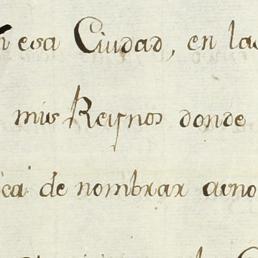 en esa Ciudad, en las
mis Reynos donde
ca de nombrar